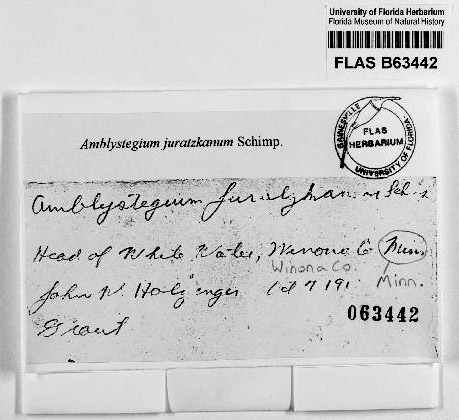 University of Florida Herbarium
Florida Museum of Natural History
FLAS B63442
Amblystegium juratzkanum Schimp.
GAINESVILLE
FLAS
HERBARIUM
UNIVERSITY OF FLORIDA
Amblystegium
Head of White Water, Winona Co Minn
Winona Co.
Minn.
John Holzinger Oct 191
063442
Grout